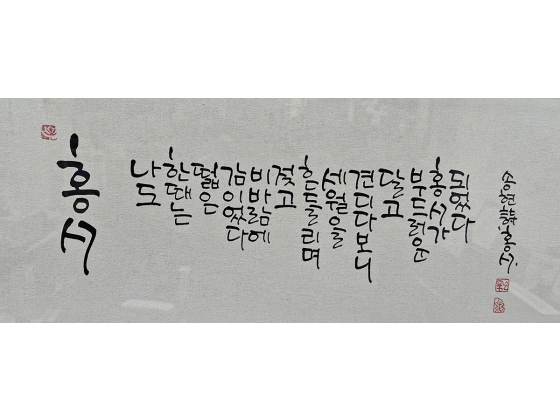 홍시
나도
한때는
떫은
감이었다
비바람에
젖고
흔들리며
세월을
견디다보니
달고
부드러운
홍시가
되었다
송현詩. 홍시.